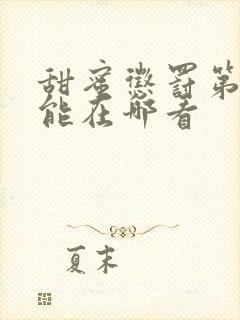 甜蜜懲罰第
能在哪看
夏末